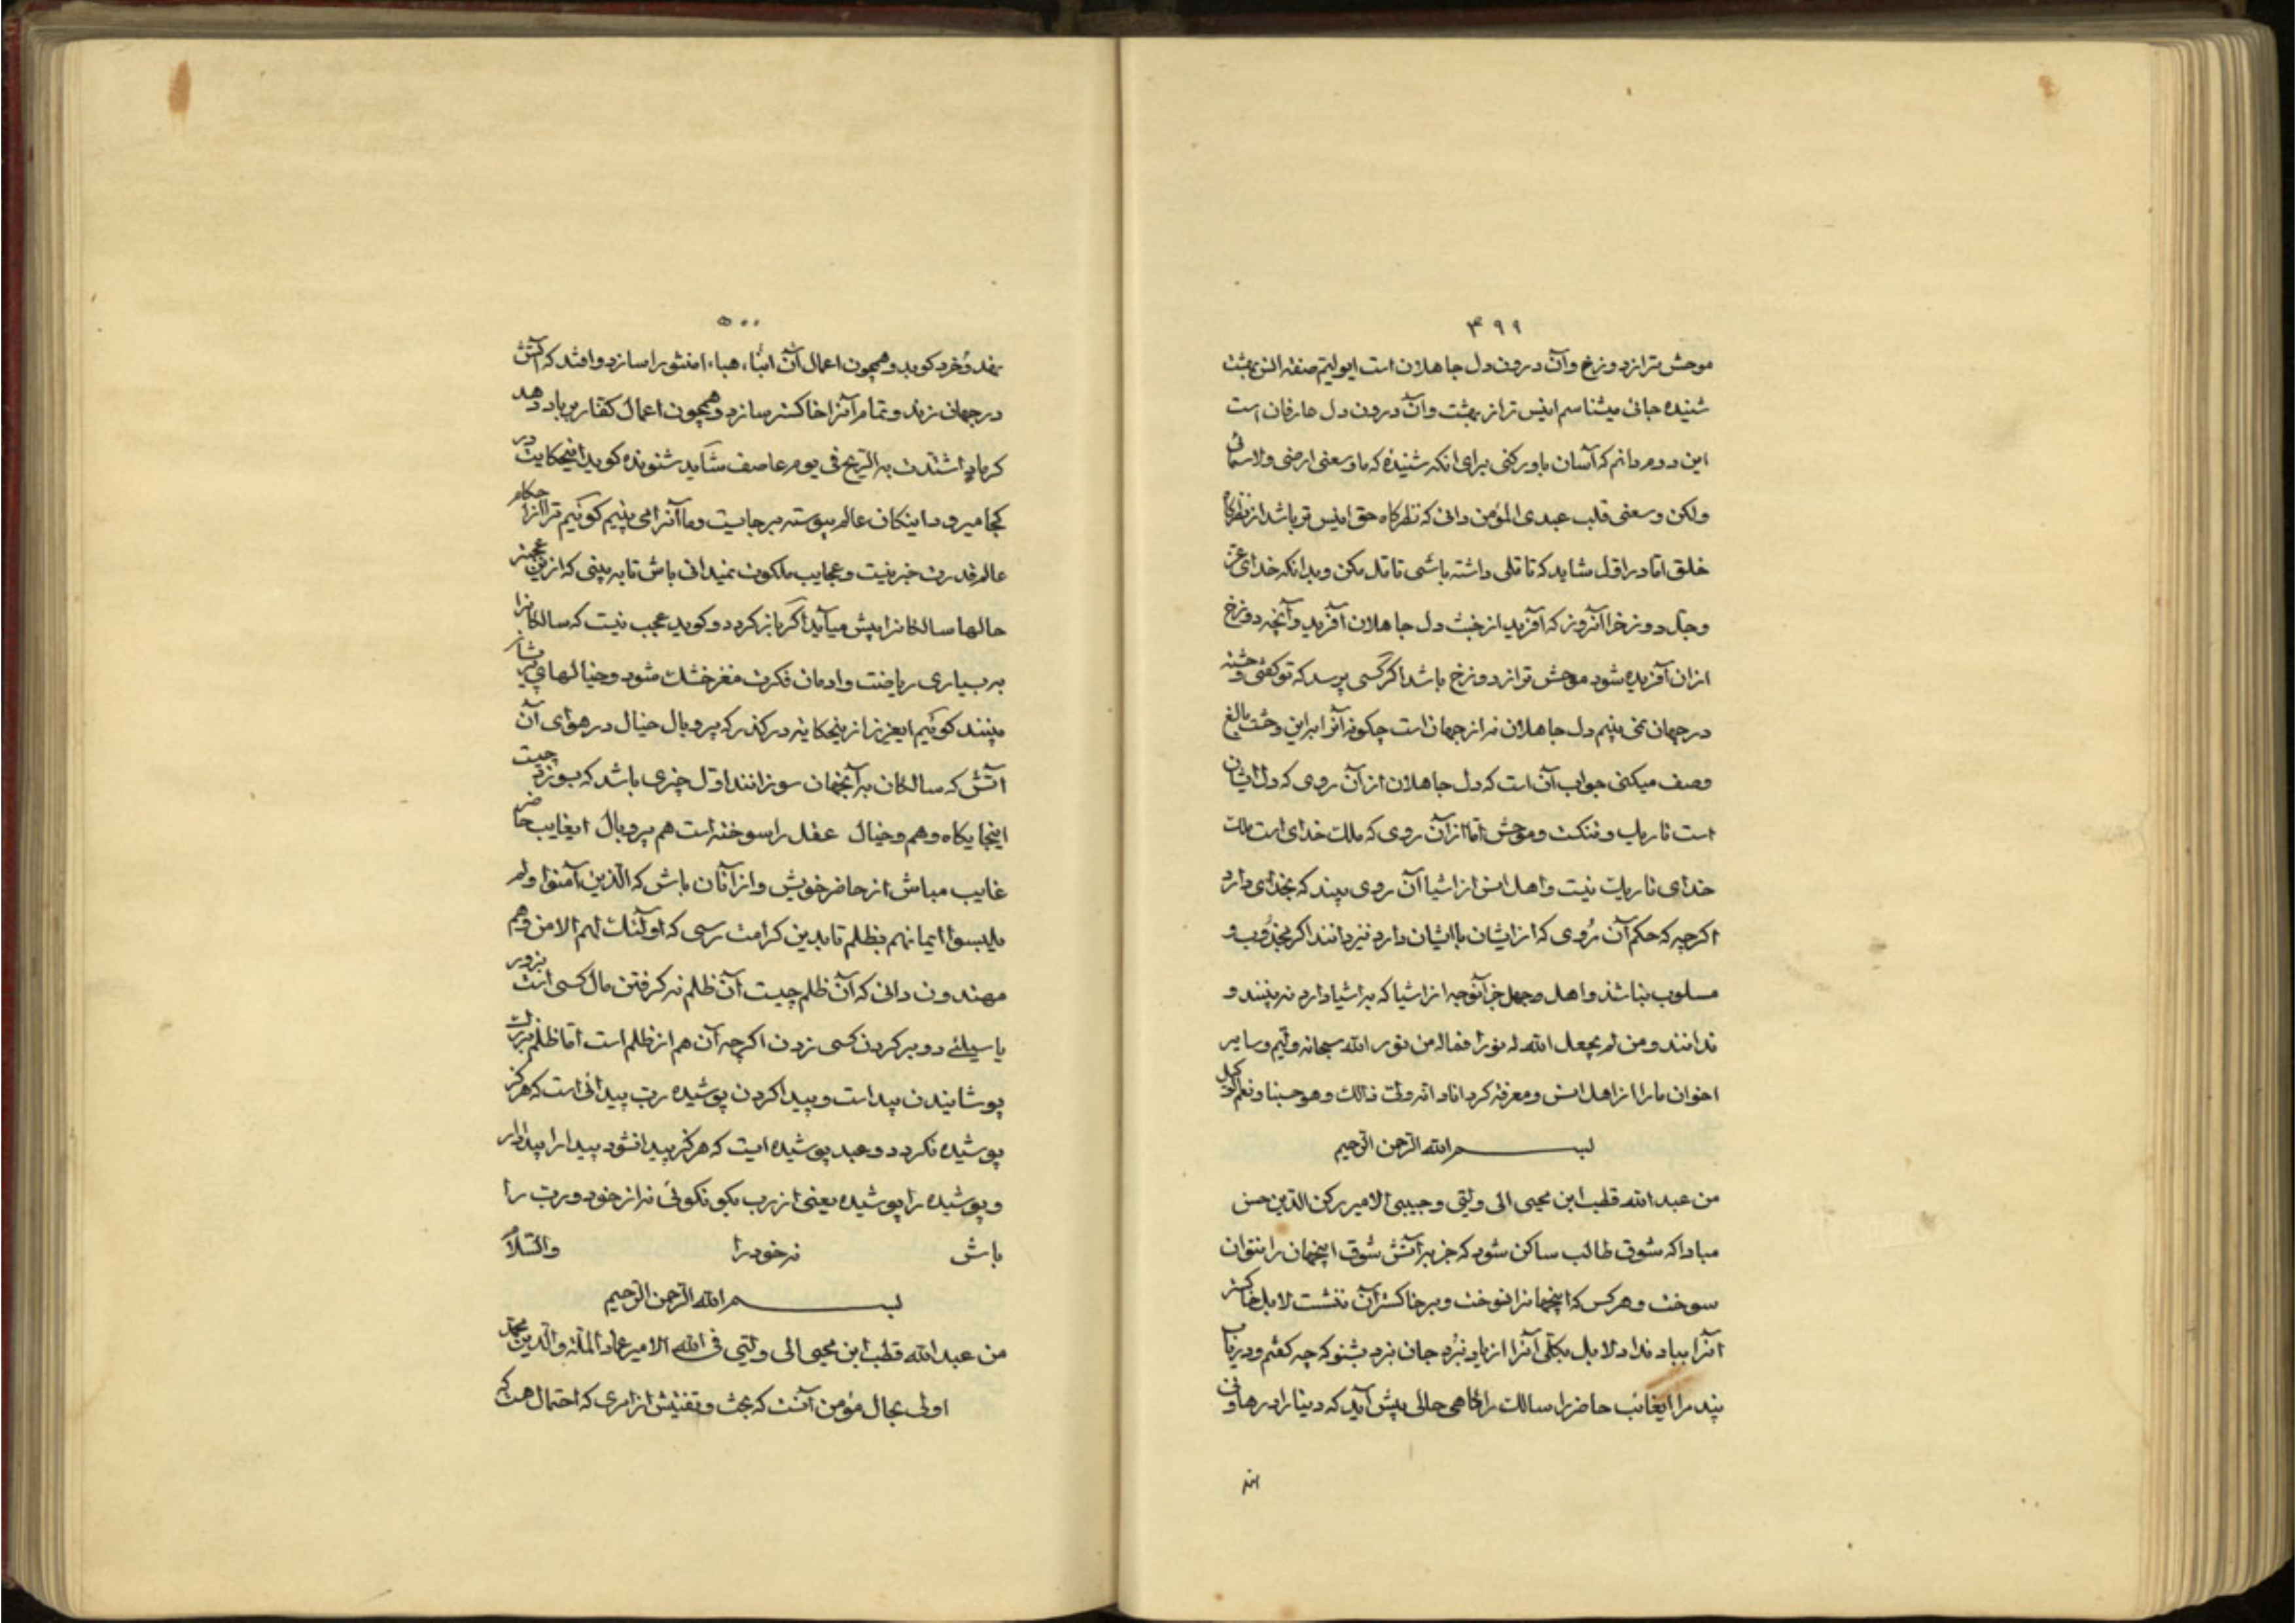 ۴۹۹
موحش تر از دوزخ و آن درون دل جاهلان است ایولیتم صفته النی بهشت
شنیده جائی میشناسم انیس تر از بهشت و آن درون دل عارفان است
این دوم دانم که آسان باور کنی برای انکه شنیدهٔ که ما وسعنی ارضی ولا سمائی
ولکن وسعنی قلب عبدی المؤمن دانی که نظرکاه حق انیس تر باشد از نظرکاه
خلق اما در اول شاید که تاملی داشته باشی تامل مکن و بدانکه خدای عز
وجل دوزخرا آنروز که آفرید از خبث دل جاهلان آفرید و آنچه دوزخ
ازان آفریده شود موحش تر از دوزخ باشد اکر کسی پرسد که تو کفتی وحشته
در جهان نمی بینم دل جاهلان نه از جهان است چکونه آنرا براین وحشت بالغ
وصف میکنی جواب آن است که دل جاهلان از آن روی که دل ایشان
است تاریک و تنکست و موحش اما از آن روی که ملک خدای است ملک
خدای تاریک نیست و اهل انس از اشیا آن روی بیند که بخدای دارد
اکرچه که حکم آن رُوی که از ایشان با ایشان دارد نیز دانند اکر مجذوب و
مسلوب نباشد و اهل جهل جز آنوجه از اشیا که به اشیا دارد نه بینند و
ندانند و من لم یجعل الله له نورا فماله من نور الله سبحانه ولیم و سایر
اخوان مارا از اهل انس و معرفة کرداناد انه ولی ذالک و هو حسبنا و نعم الوکیل
بسم الله الرحمن الرحیم
من عبد الله قطب ابن محیی الی ولیی و حبیبی الامیر رکن الدین حسن
مبادا که شوق طالب ساکن شود که جز به آتش شوق اینجهان را نتوان
سوخت و هرکس که اینجهانرا نسوخت و بر خاکستر آن ننشست لا بل خاکستر
آنرا بباد نداد لا بل بکلی آنرا از یاد نبرد جان نبرد بشنو که چه کفتم و دریاب
پند مرا ایغائب حاضر را سالک را کاهی حالی پیش آید که دنیا را درهاونی
۵۰۰
نهد و خرد کوبد و همچون اعمال آن ابناء هباء امنثورا سازد و افتد که آتش
در جهان زند و تمام آنرا خاکستر سازد و همچون اعمال کفار برباد دهد
کرماد اشتدت به الریح فی یوم عاصف شاید شنونده کوید اینحکایت در
کجا میرود اینکان عالم پیوسته برجایست و ما آنرا می بینیم کوئیم ترا از احکام
عالم قدرت خبر نیست و عجایب ملکوت نمیدانی باش تا به بینی که ازین عجبتر
حالها سالکانرا پیش میآید اکر باز کردد و کوید عجب نیست که سالکانرا
به بسیاری ریاضت و ادمان فکرت مغز خشک شود و خیالهای پریشان
بینند کوئیم ایعزیز ازینحکایه در کذر که پر و بال خیال در هوای آن
آتش که سالکان به آنجهان سوزانند اول چیزی باشد که بسوزد چیست
اینجایکاه وهم و خیال عقل را سوخته است هم پر و بال ایغایب حاضر
غایب مباش از حاضر خویش و از آنان باش که الذین آمنوا ولم
یلبسوا ایمانهم بظلم تا بدین کرامت رسی که اولئک لهم الامن وهم
مهتدون دانی که آن ظلم چیست آن ظلم نه کرفتن مال کسی است بزور
یا سیلئے دو بر کردن کسی زدن اکرچه آن هم از ظلم است اما ظلم بزرک
پوشانیدن پیداست و پیدا کردن پوشیده رب پیدائی است که هرکز
پوشیده نکردد و عبد پوشیده ایست که هرکز پیدا نشود پیدا را پیدا دار
و پوشیده را پوشیده یعنی از رب بکو نکوئی نه از خود و رب را
باش نه خود را والسلام
بسم الله الرحمن الرحیم
من عبد الله قطب ابن محیی الی ولیی فی الله الامیر عماد الملة والدین محمد
اولی بحال مؤمن آنست که بحث و تفتیش از امری که احتمال هست که